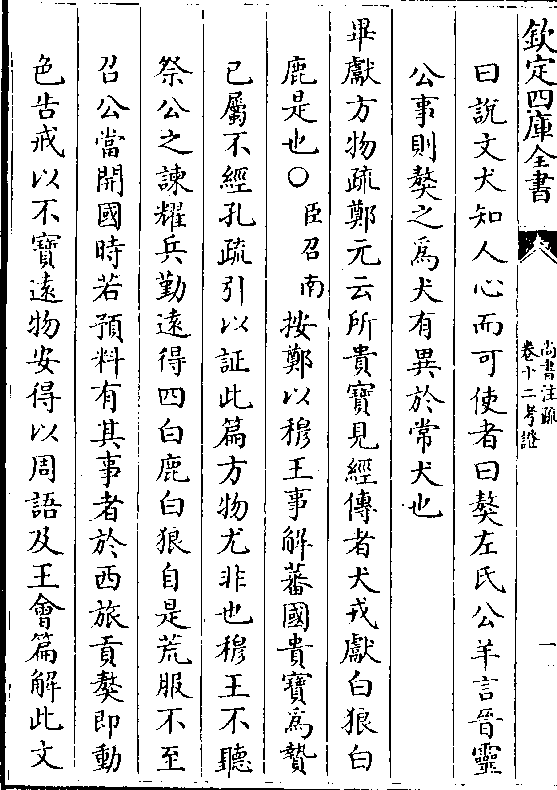 欽定四庫全書
尚書注疏
卷十二考證
一
曰說文犬知人心而可使者曰獒左氏公羊言晉靈
公事則獒之爲犬有異於常犬也
畢獻方物疏鄭元云所貴寶見經傳者犬戎獻白狼白
鹿是也○臣召南按鄭以穆王事解蕃國貴寶爲贄
已屬不經孔疏引以証此篇方物尤非也穆王不聽
祭公之諫耀兵勤遠得四白鹿白狼自是荒服不至
召公當開國時若預料有其事者於西旅貢獒即動
色告戒以不寶遠物安得以周語及王會篇解此文